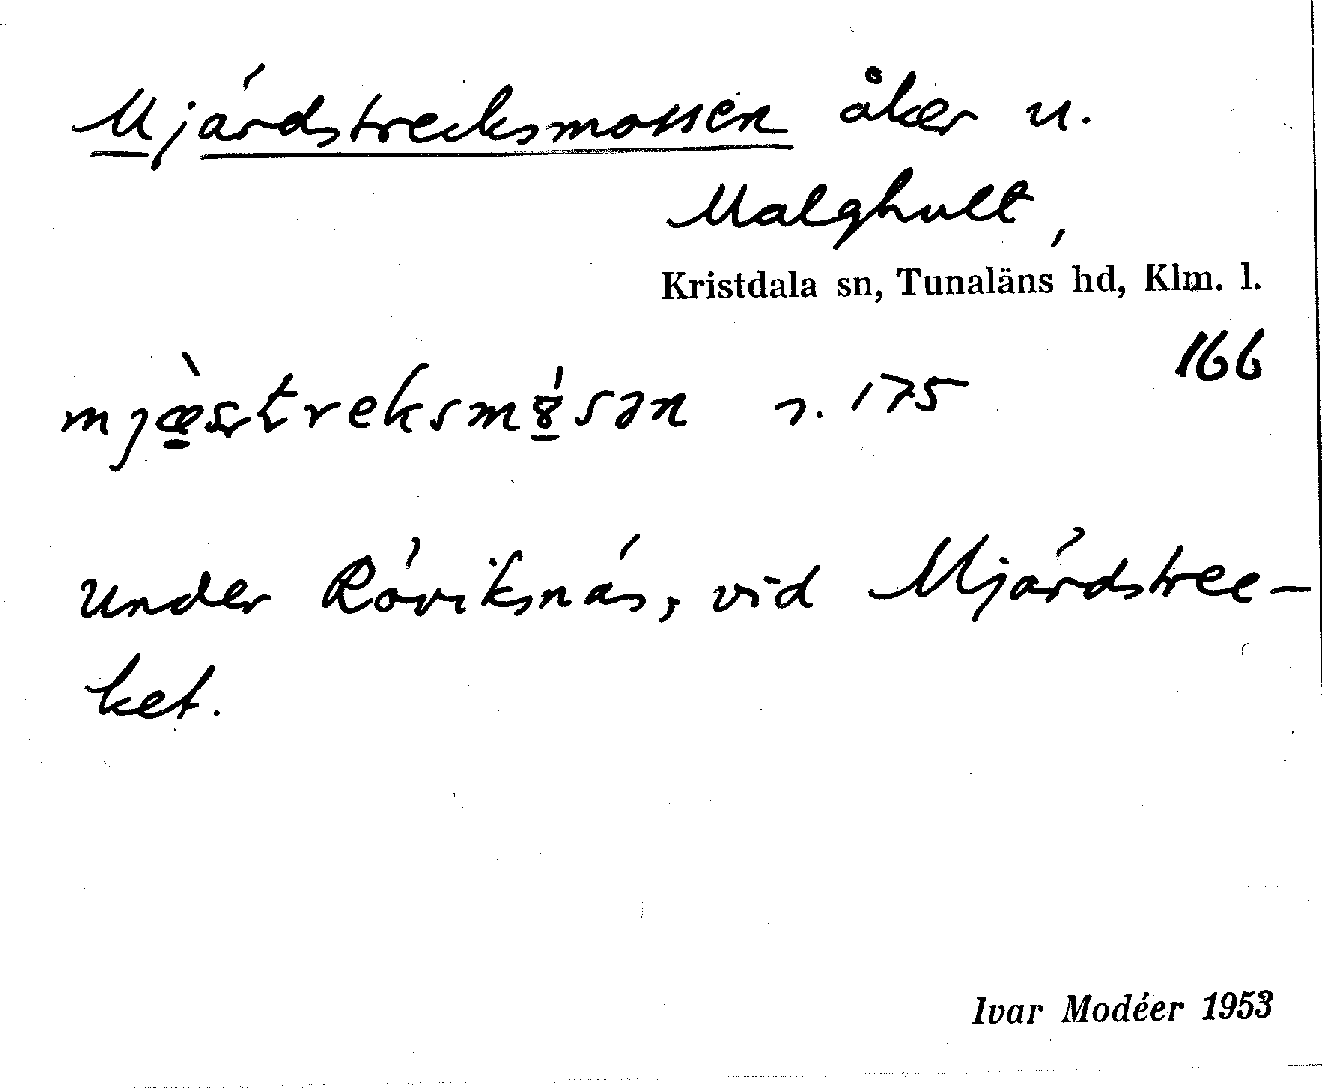 Mjärdstrecksmossen åker u.
Malghult,
Kristdala sn, Tunaläns hd, Klm. l.
166
mjæ̀ștreksmȣ́sən r. 175
under Röviksnäs, vid Mjärdstrec-
ket.
Ivar Modéer 1953